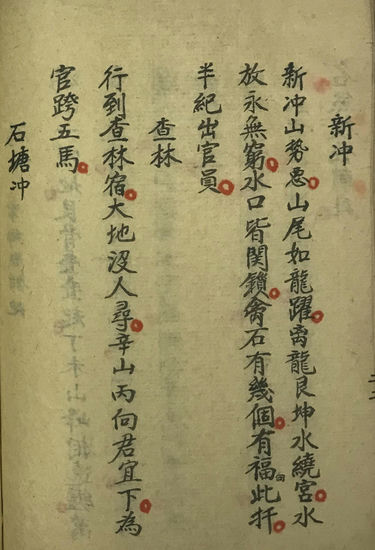 新冲
新冲山势恶山尾如龍躍离龍艮坤水繞宮水
放永無窮水口皆関鎖禽石有幾個有福向此扦
半紀出官員
查林
行到查林宿大地没人尋辛山丙向君宜下為
官跨五馬
石塘冲